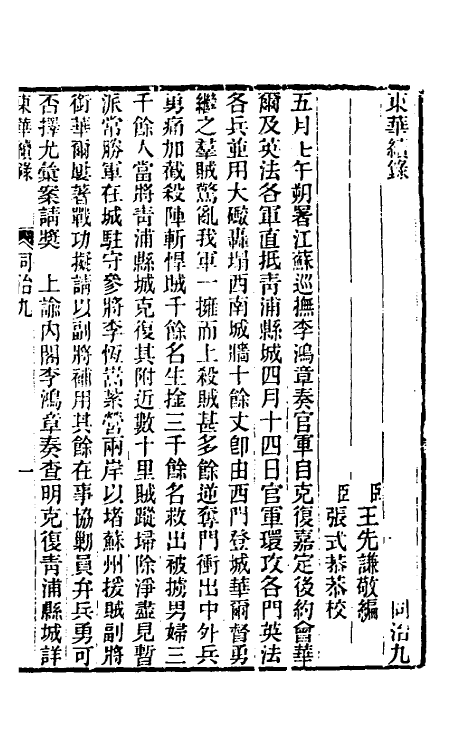 東華續錄
同治九
臣王先謙敬編
臣張式恭恭校
五月壬午朔署江蘇巡撫李鴻章奏官軍自克復嘉定後約會華
爾及英法各軍直抵靑浦縣城四月十四日官軍環攻各門英法
各兵並用大礮轟塌西南城牆十餘丈卽由西門登城華爾督勇
繼之羣賊驚亂我軍一擁而上殺賊甚多餘逆奪門衝出中外兵
勇痛加截殺陣斬悍賊千餘名生擒三千餘名救出被擄男婦三
千餘人當將靑浦縣城克復其附近數十里賊蹤埽除淨盡見暫
派常勝軍在城駐守參將李恆嵩紮營兩岸以堵蘇州援賊副將
銜華爾屢著戰功擬請以副將補用其餘在事協勦員弁兵勇可
否擇尤彙案請奬　上諭內閣李鴻章奏查明克復靑浦縣城詳
東華續錄
同治九
一